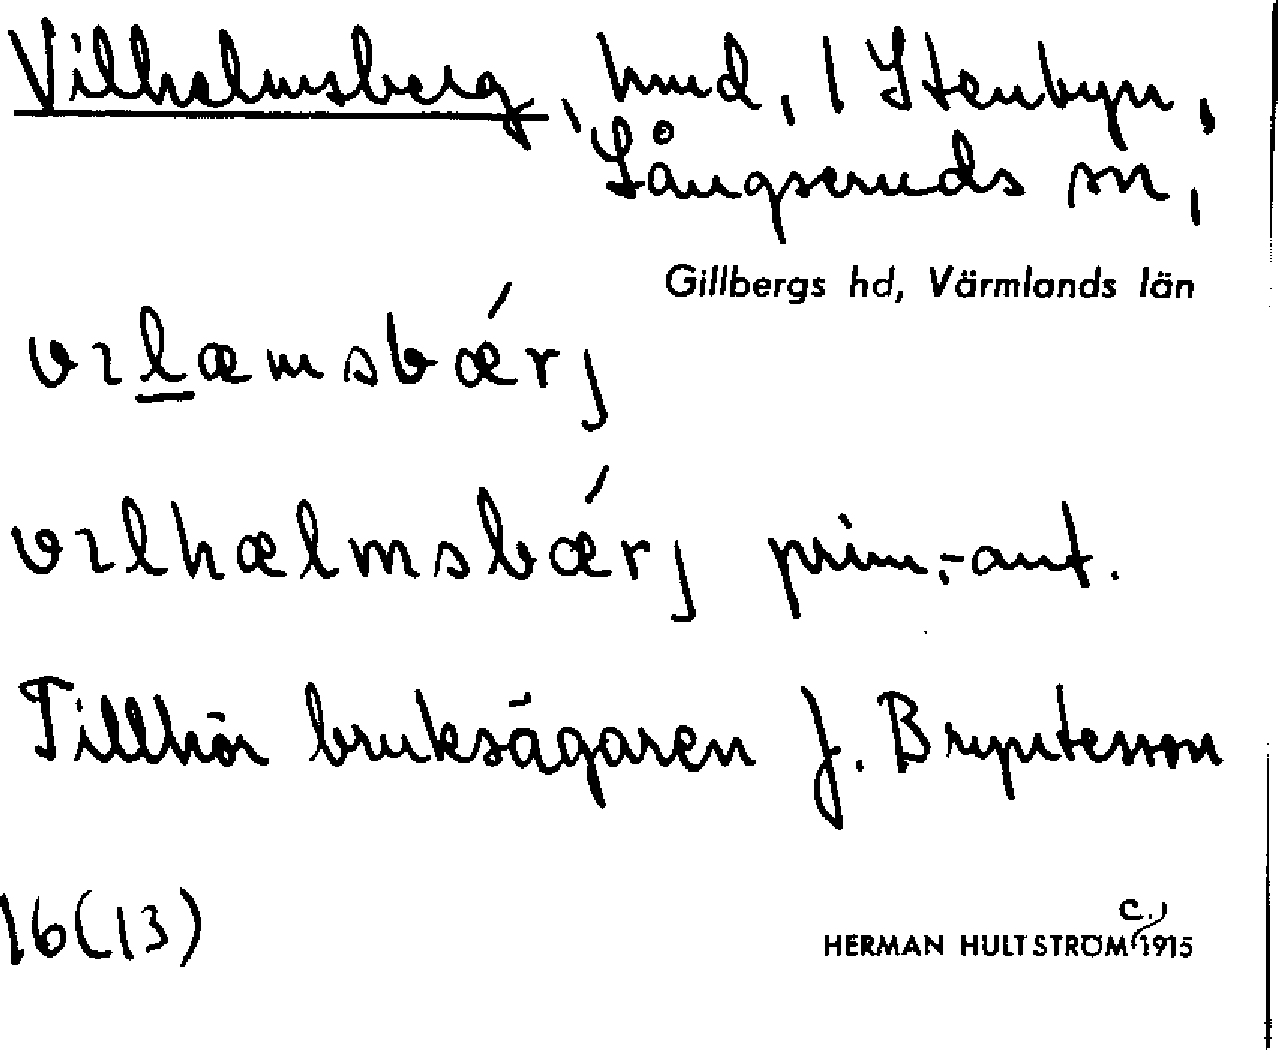 Vilhelmsberg, hmd, 1 Stenbyn,
Långseruds sn,
Gillbergs hd, Värmlands län
vɪlæmsbǽrj
vɪlhælmsbǽrj prim.-ant.
Tillhör bruksägaren J. Bryntesson
16(13)
c.
HERMAN HULTSTRÖM 1915